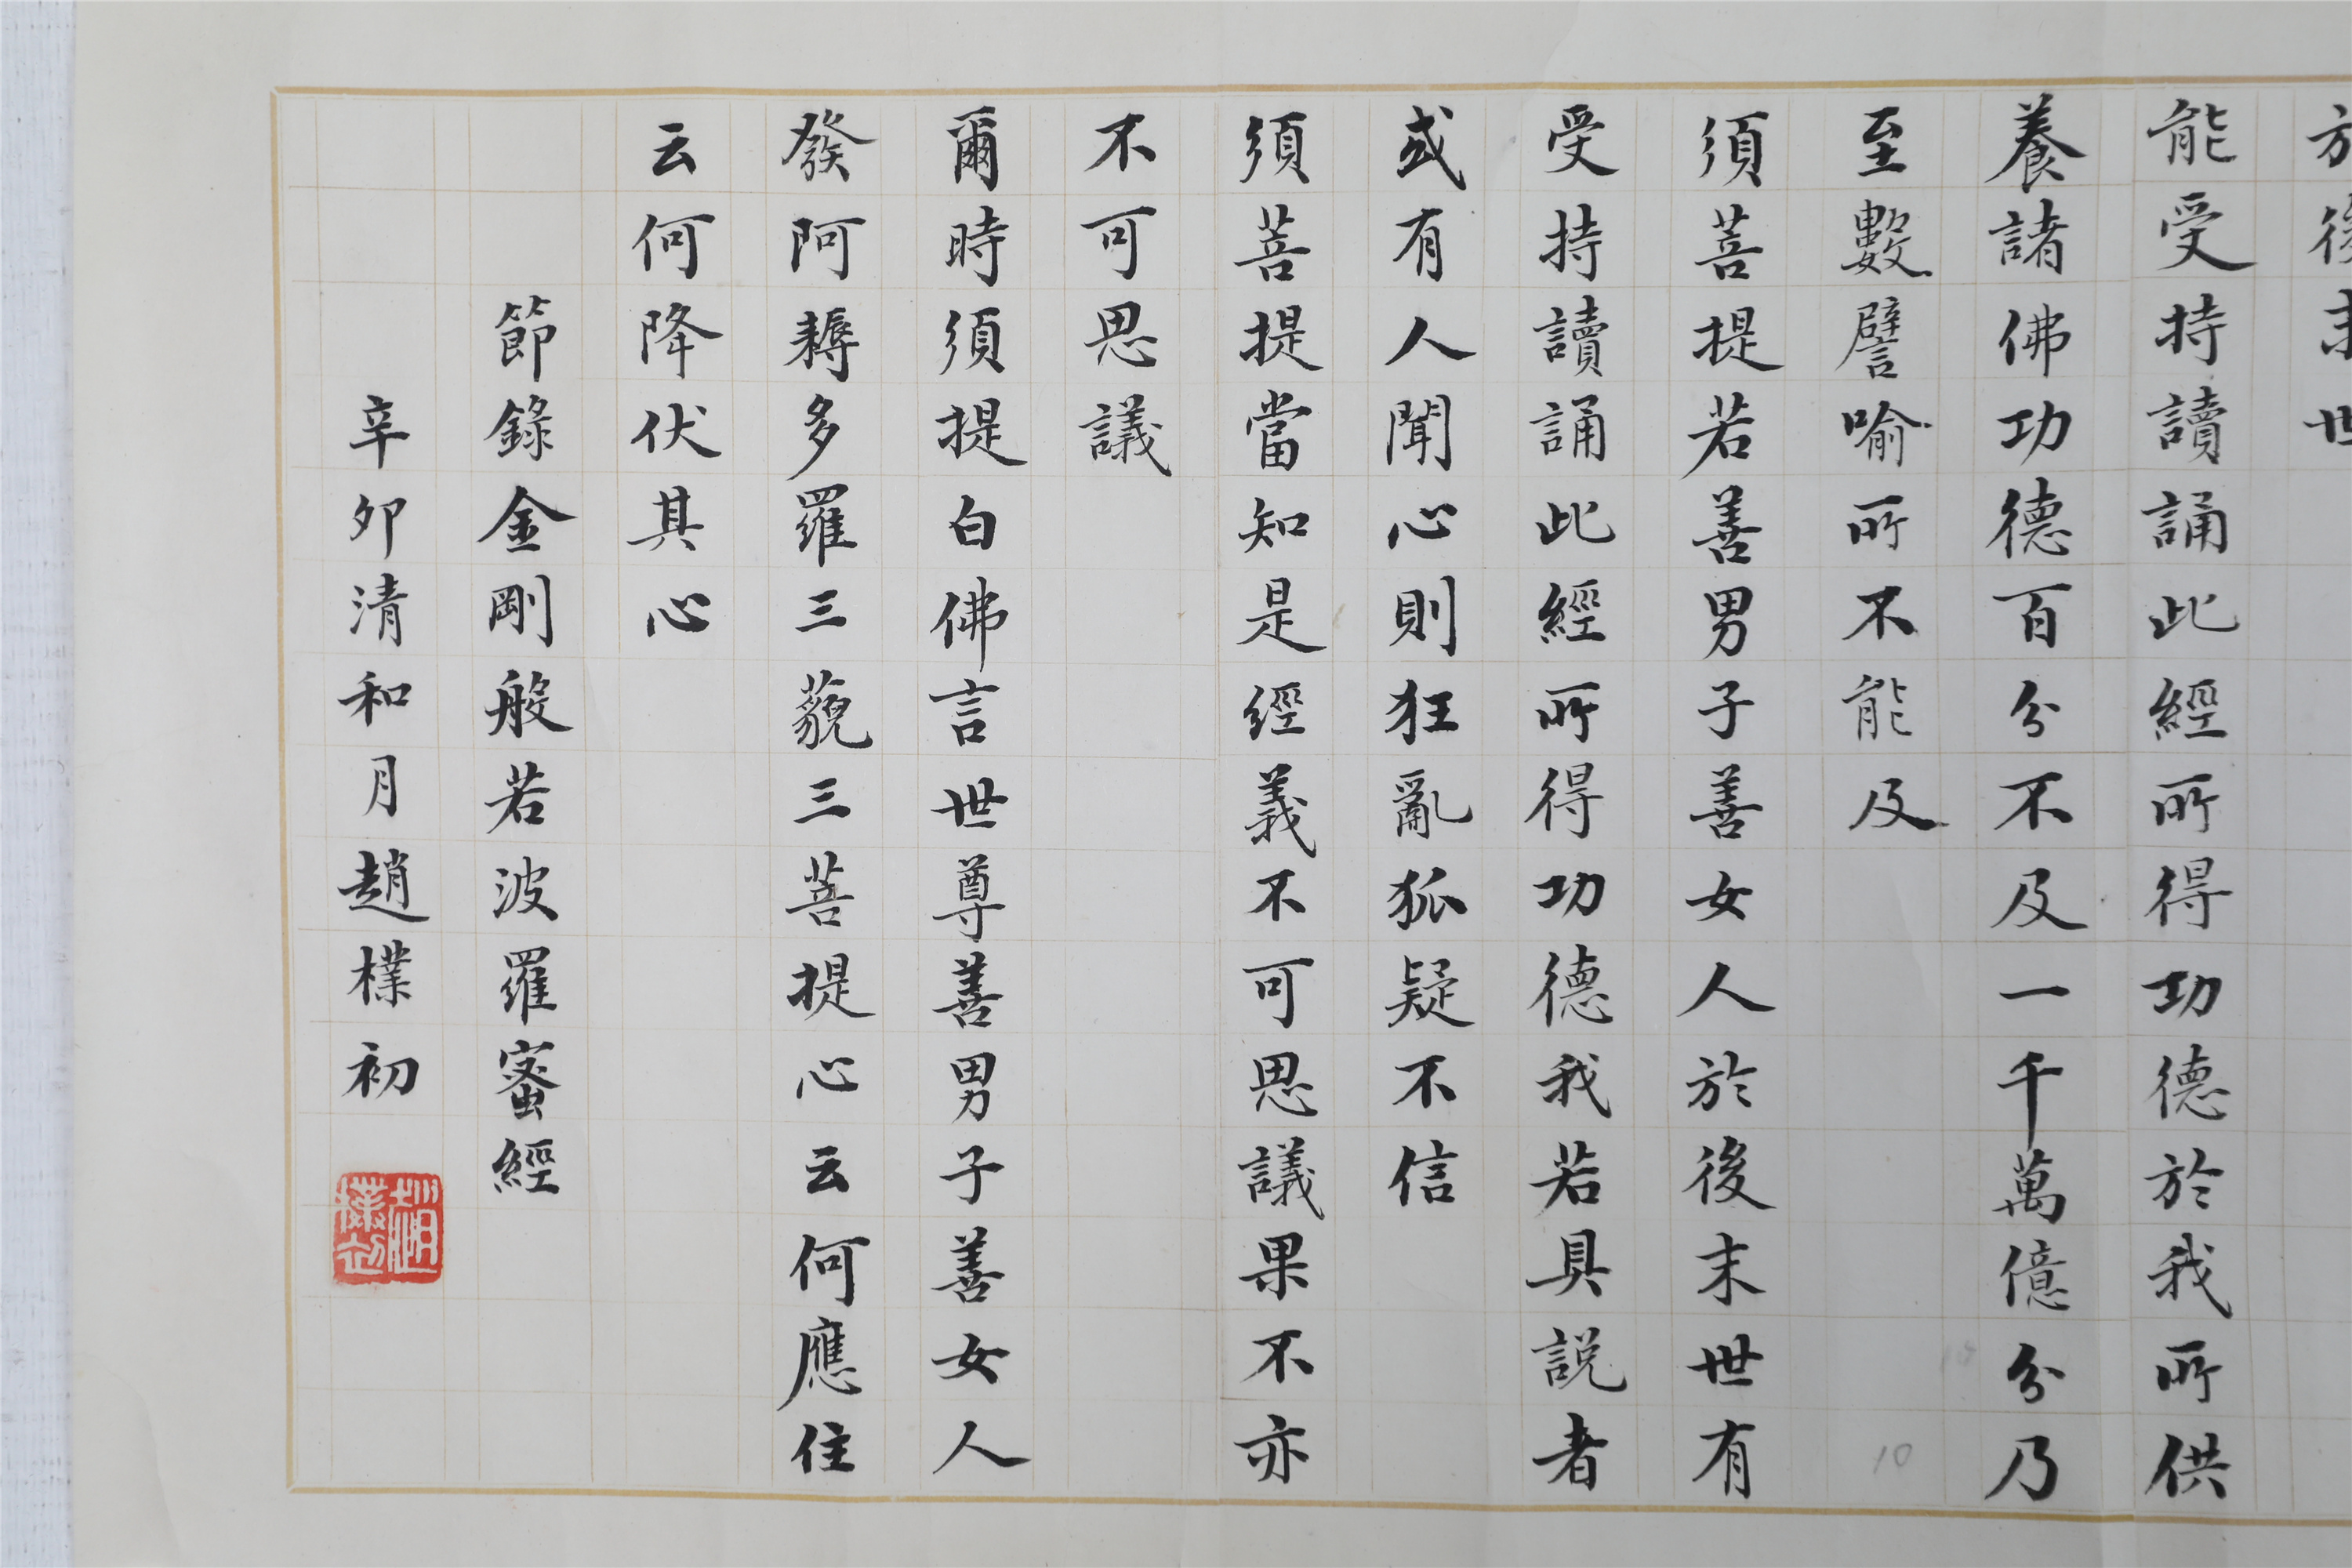 於後末世
能受持讀誦此經所得功德於我所供
養諸佛功德百分不及一千萬億分乃
至數譬喻所不能及
10
須菩提若善男子善女人於後末世有
受持讀誦此經所得功德我若具説者
或有人聞心則狂亂狐疑不信
須菩提當知是經義不可思議果不亦
不可思議
爾時須提白佛言世尊善男子善女人
發阿耨多羅三藐三菩提心云何應住
云何降伏其心
節錄金剛般若波羅蜜經
辛卯清和月趙樸初
趙樸初